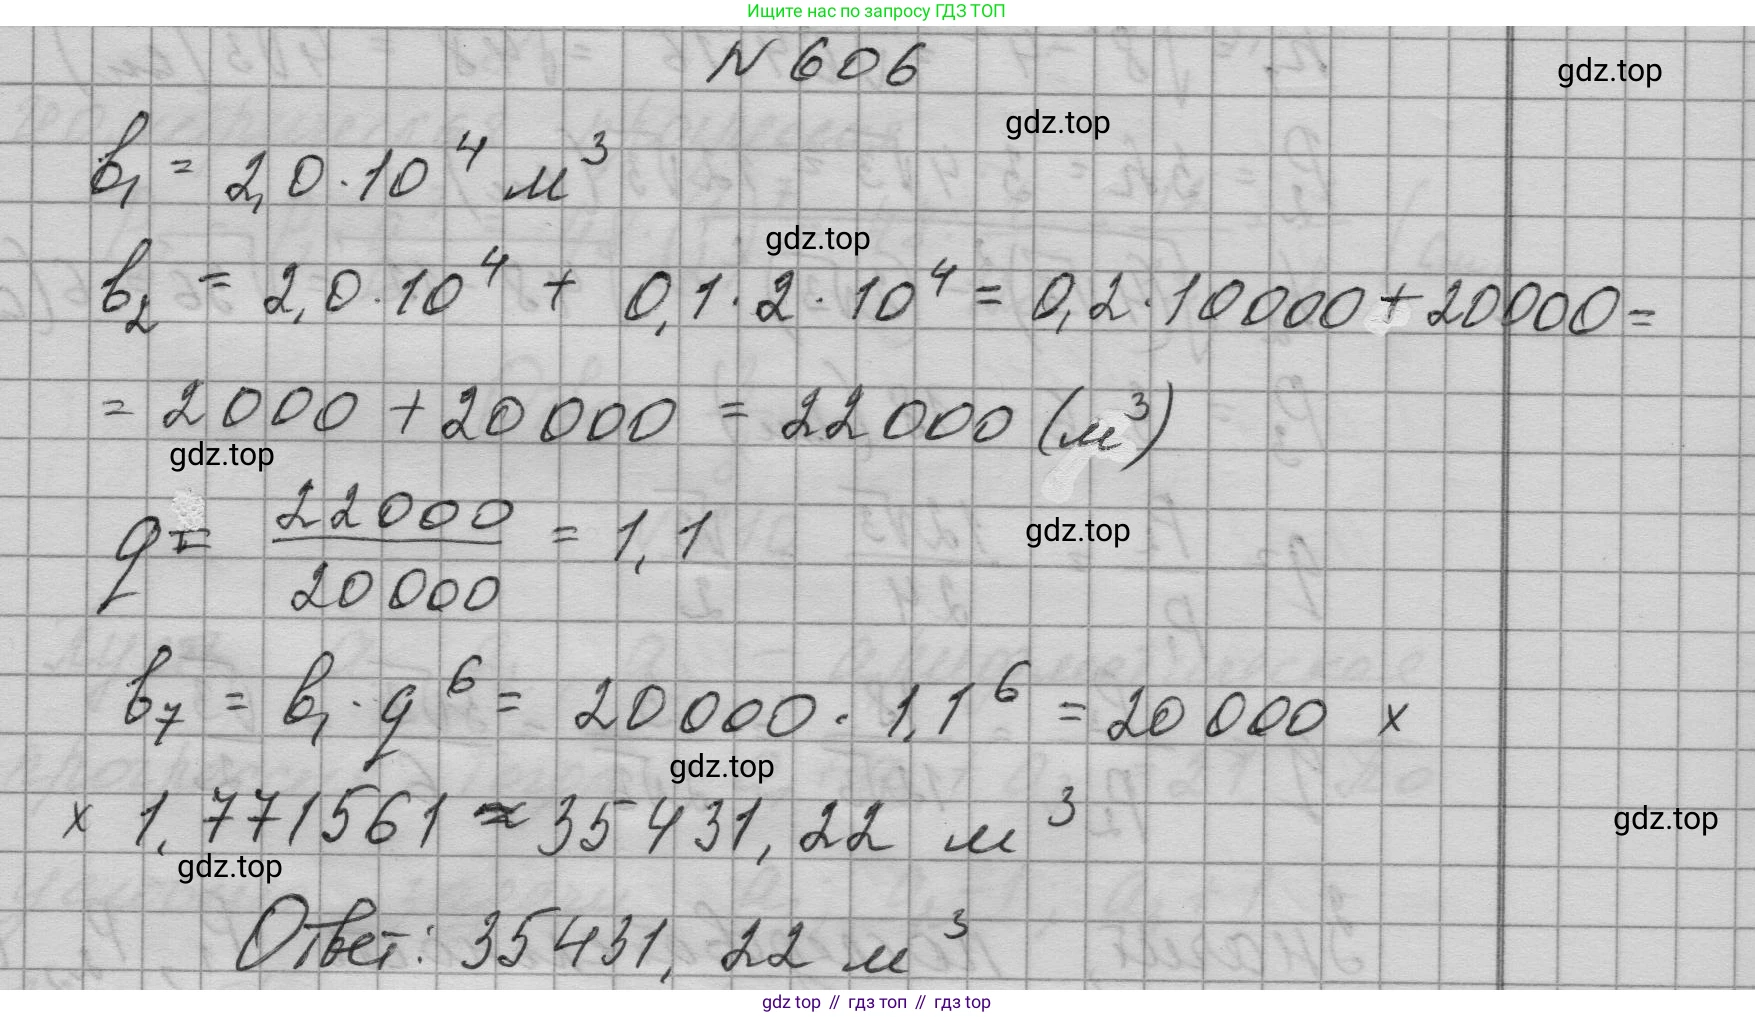 Ищите нас по запросу ГДЗ ТОП
N 606
gdz.top
gdz.top
b₁ = 2,0·10⁴ м³
gdz.top
b₂ = 2,0·10⁴ + 0,1·2·10⁴ = 0,2·10000+20000=
= 2000 + 20000 = 22000 (м³)
gdz.top
q = 22000/20000 = 1,1
gdz.top
b₇ = b₁·q⁶ = 20000·1,1⁶ = 20000 ×
gdz.top
× 1,771561 ≈ 35431,22 м³
gdz.top
gdz.top
Ответ: 35431,22 м³
gdz top // гдз топ // гдз top